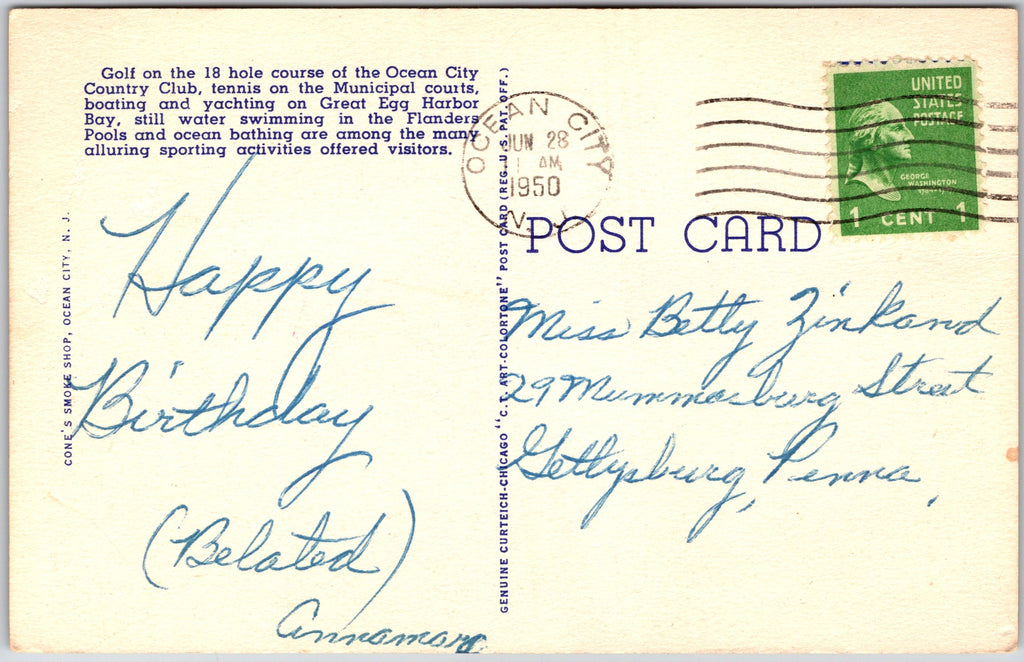 Golf on the 18 hole course of the Ocean City
Country Club, tennis on the Municipal courts,
boating and yachting on Great Egg Harbor
Bay, still water swimming in the Flanders
Pools and ocean bathing are among the many
alluring sporting activities offered visitors.
CONE'S SMOKE SHOP, OCEAN CITY, N. J.
Happy
Birthday
(Belated)
GENUINE CURTEICH-CHICAGO "C. T. ART-COLORTONE" POST CARD (REG. U.S. PAT. OFF.)
OCEAN CITY
JUN 28
11 AM
1950
N. J.
UNITED
STATES
POSTAGE
GEORGE
WASHINGTON
1 CENT 1
POST CARD
Miss Betty Zinkand
29 Mummasburg Street
Gettysburg, Penna,